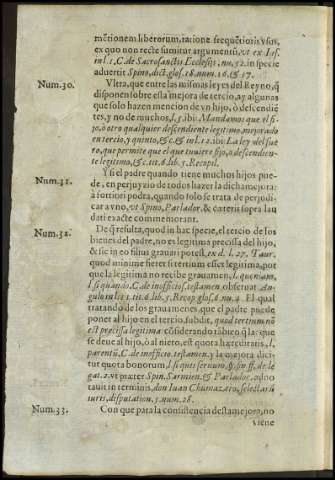 mētionem liberorum, ratione frequētioris vsus,
ex quo non recte sumitur argumentū, vt ex Ias.
in l. 1, C. de Sacrosanctis Ecclesijs, nu. 52. in specie
advertit Spino, dict. glos. 18. num. 16. & 17.
Num. 30. Vltra, que entre las mismas leyes del Reyno, q̄
disponen sobre esta mejora de tercio, ay algunas
que solo hazen mencion de vn hijo, ò descendiē
tes, y no de muchos, l. 3. ibi: Mandamos que el fi-
jo, ò otro qualquier descendiente legitimo, mejorado
en tercio, y quinto, &c. & in l. 12. ibi: La ley del fue
ro, que permite que el que tuviere fijo, o descendien-
te legitimo, & c. tit. 6. lib. 5. Recopil.
Num. 31. Y si el padre quando tiene muchos hijos pue-
de, en perjuyzio de todos hazer la dicha mejora:
à fortiori podrà, quando solo se trata de perjudi-
car a vno, vt Spino, Parlador, & cæteris supra lau
dati exacte commemorant.
Num. 32. De q̄ resulta, quod in hac specie, el tercio de los
bienes del padre, no es legitima precissa del hijo,
& sic in eo filius gravari potest, ex d. l. 27. Taur.
quod minime fieret si tertium esset legitima, por
que la legitima no recibe gravamen, l. quoniam,
l. si quando, C. de inofficios. testamen. observat
Angulo in l. 11. tit. 6. lib. 5. Recop. glos. 6. nu. 2. El qual
tratando de los gravamenes que el padre puede
poner al hijo en el tercio, subdit, quod tertium nō
est precissa legitima: cōsiderando tābien q̄ la que
se deue al hijo, ò al nieto, est quota hæreditatis, l.
parentū, C. de inoffic. testamen. y la mejora dici-
tur quota bonorum, l. si quis servum, §. fin. ff. de le
gat. 2. vt præter Spin. Sarmien. & Parlador, adno
tauit in terminis, don Iuan Chumazaro, selectarū
iuris, disputation. 3. num. 28.
Num. 33. Con que para la consistencia desta mejora, no
viene